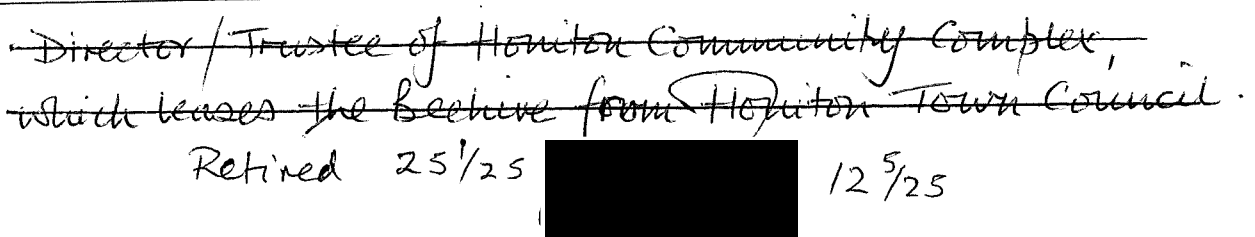 Director/Trustee of Honiton Community Complex,
which leases the Beehive from Honiton Town Council.
Retired 25 1/25 12 5/25